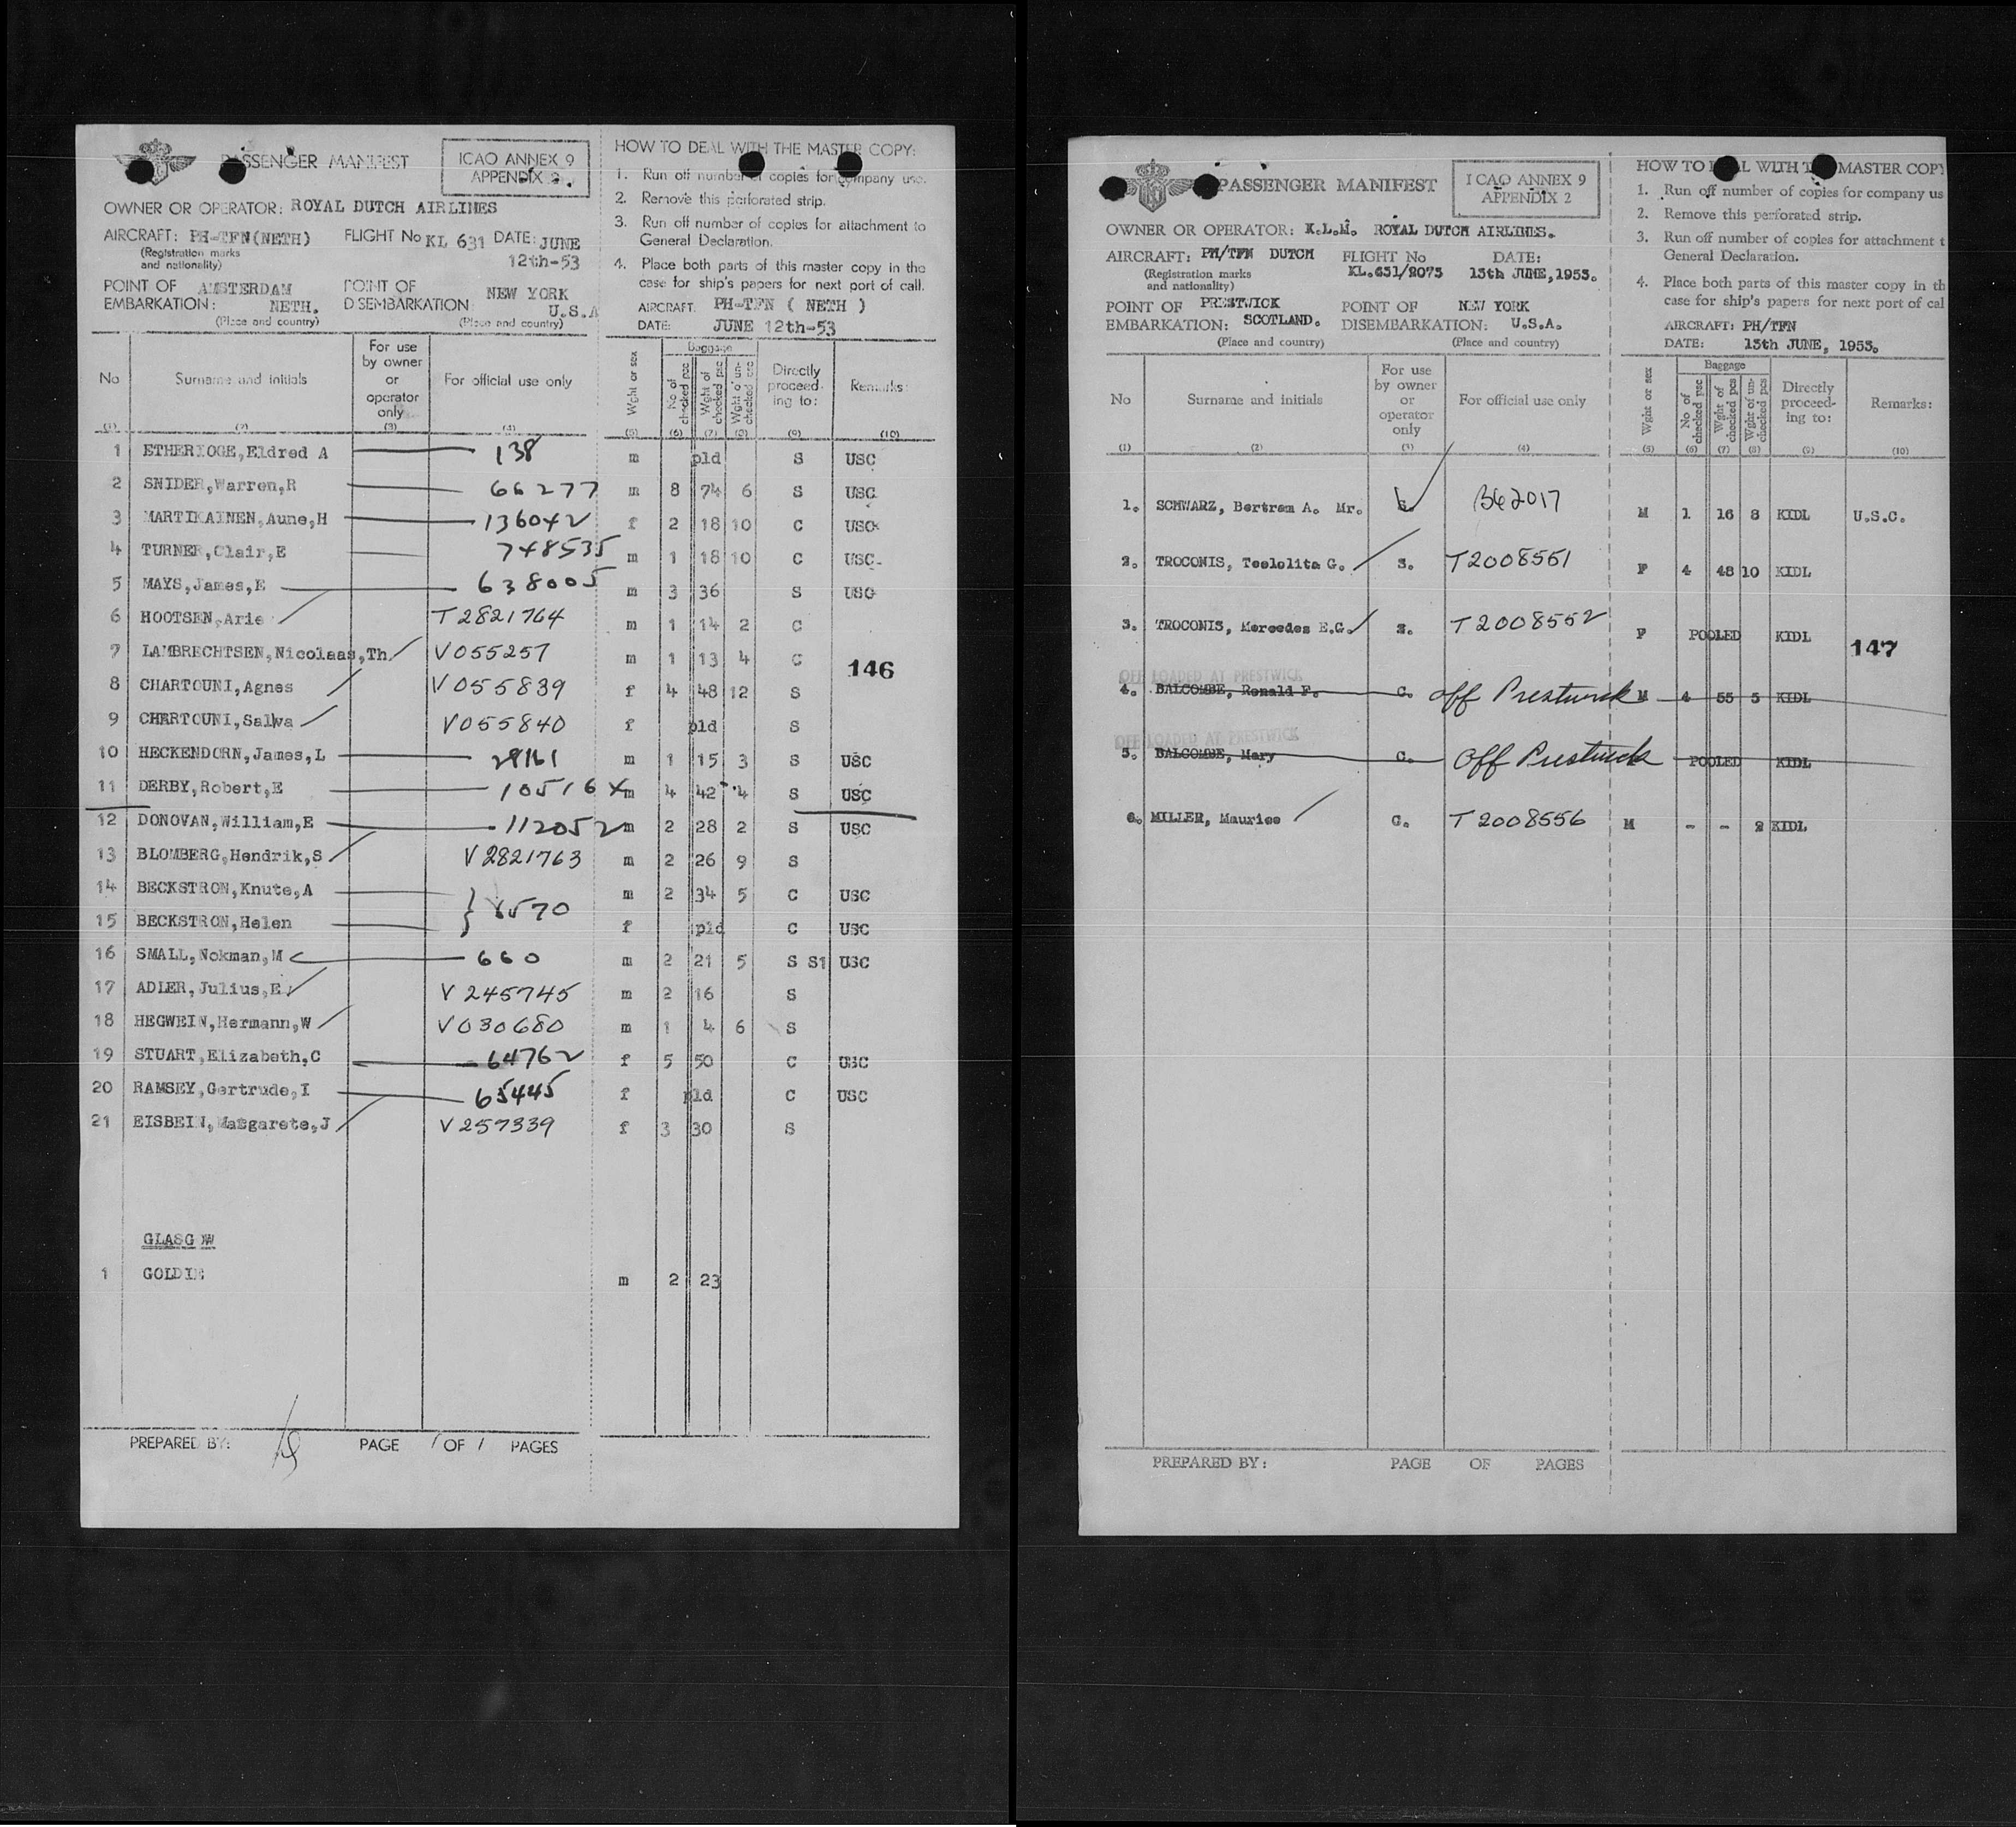 PASSENGER MANIFEST
ICAO ANNEX 9
APPENDIX 2
OWNER OR OPERATOR: ROYAL DUTCH AIRLINES
AIRCRAFT: PH-TFN(NETH) FLIGHT No KL 631 DATE: JUNE
(Registration marks
and nationality) 12th-53
POINT OF AMSTERDAM POINT OF NEW YORK
EMBARKATION: NETH. DISEMBARKATION: U.S.A
(Place and country) (Place and country)
HOW TO DEAL WITH THE MASTER COPY:
1. Run off number of copies for company use.
2. Remove this perforated strip.
3. Run off number of copies for attachment to
General Declaration.
4. Place both parts of this master copy in the
case for ship's papers for next port of call.
AIRCRAFT: PH-TFN ( NETH )
DATE: JUNE 12th-53
No Surname and initials For use by owner or operator only For official use only Wght or sex Baggage No of checked pcs Wght of checked pcs Wght of un-checked pcs Directly proceed-ing to: Remarks:
(1) (2) (3) (4) (5) (6) (7) (8) (9) (10)
1 ETHERIOGE,Eldred A 138 m pld S USC
2 SNIDER,Warren,R 66277 m 8 74 6 S USC
3 MARTIKAINEN,Aune,H 136042 f 2 18 10 C USC
4 TURNER,Clair,E 748535 m 1 18 10 C USC
5 MAYS,James,E 638005 m 3 36 S USC
6 HOOTSEN,Arie T2821764 m 1 14 2 C
7 LAMBRECHTSEN,Nicolaas,Th V055257 m 1 13 4 C
146
8 CHARTOUNI,Agnes V055839 f 4 48 12 S
9 CHARTOUNI,Salwa V055840 f pld S
10 HECKENDORN,James,L 28161 m 1 15 3 S USC
11 DERBY,Robert,E 105164 m 4 42 4 S USC
12 DONOVAN,William,E 112052 m 2 28 2 S USC
13 BLOMBERG,Hendrik,S V2821763 m 2 26 9 S
14 BECKSTRON,Knute,A m 2 34 5 C USC
} 8570
15 BECKSTRON,Helen f pld C USC
16 SMALL,Nokman,M 660 m 2 21 5 S S1 USC
17 ADLER,Julius,E V245745 m 2 16 S
18 HEGWEIN,Hermann,W V030680 m 1 4 6 S
19 STUART,Elizabeth,C 64762 f 5 50 C USC
20 RAMSEY,Gertrude,I 65445 f pld C USC
21 EISBEIN,Margarete,J V257339 f 3 30 S
GLASGOW
1 GOLDIE m 2 23
PREPARED BY: PAGE 1 OF 1 PAGES
PASSENGER MANIFEST
ICAO ANNEX 9
APPENDIX 2
OWNER OR OPERATOR: K.L.M. ROYAL DUTCH AIRLINES.
AIRCRAFT: PH/TFN DUTCH FLIGHT No DATE:
(Registration marks
and nationality) KL.631/2073 13th JUNE,1953.
POINT OF PRESTWICK POINT OF NEW YORK
EMBARKATION: SCOTLAND. DISEMBARKATION: U.S.A.
(Place and country) (Place and country)
HOW TO DEAL WITH THE MASTER COPY
1. Run off number of copies for company us
2. Remove this perforated strip.
3. Run off number of copies for attachment t
General Declaration.
4. Place both parts of this master copy in th
case for ship's papers for next port of cal
AIRCRAFT: PH/TFN
DATE: 13th JUNE, 1953.
No Surname and initials For use by owner or operator only For official use only Wght or sex Baggage No of checked psc Wght of checked pcs Wght of un-checked pcs Directly proceed-ing to: Remarks:
(1) (2) (3) (4) (5) (6) (7) (8) (9) (10)
1. SCHWARZ, Bertram A. Mr. B62017 M 1 16 8 KIDL U.S.C.
2. TROCONIS, Teololita G. S. T2008551 F 4 48 10 KIDL
3. TROCONIS, Mercedes E.G. S. T2008552 F POOLED KIDL
147
OFF LOADED AT PRESTWICK
4. BALCOMBE, Ronald F. C. off Prestwick M 4 55 5 KIDL
OFF LOADED AT PRESTWICK
5. BALCOMBE, Mary C. off Prestwick POOLED KIDL
6. MILLER, Maurice C. T2008556 M - - 2 KIDL
PREPARED BY: PAGE OF PAGES